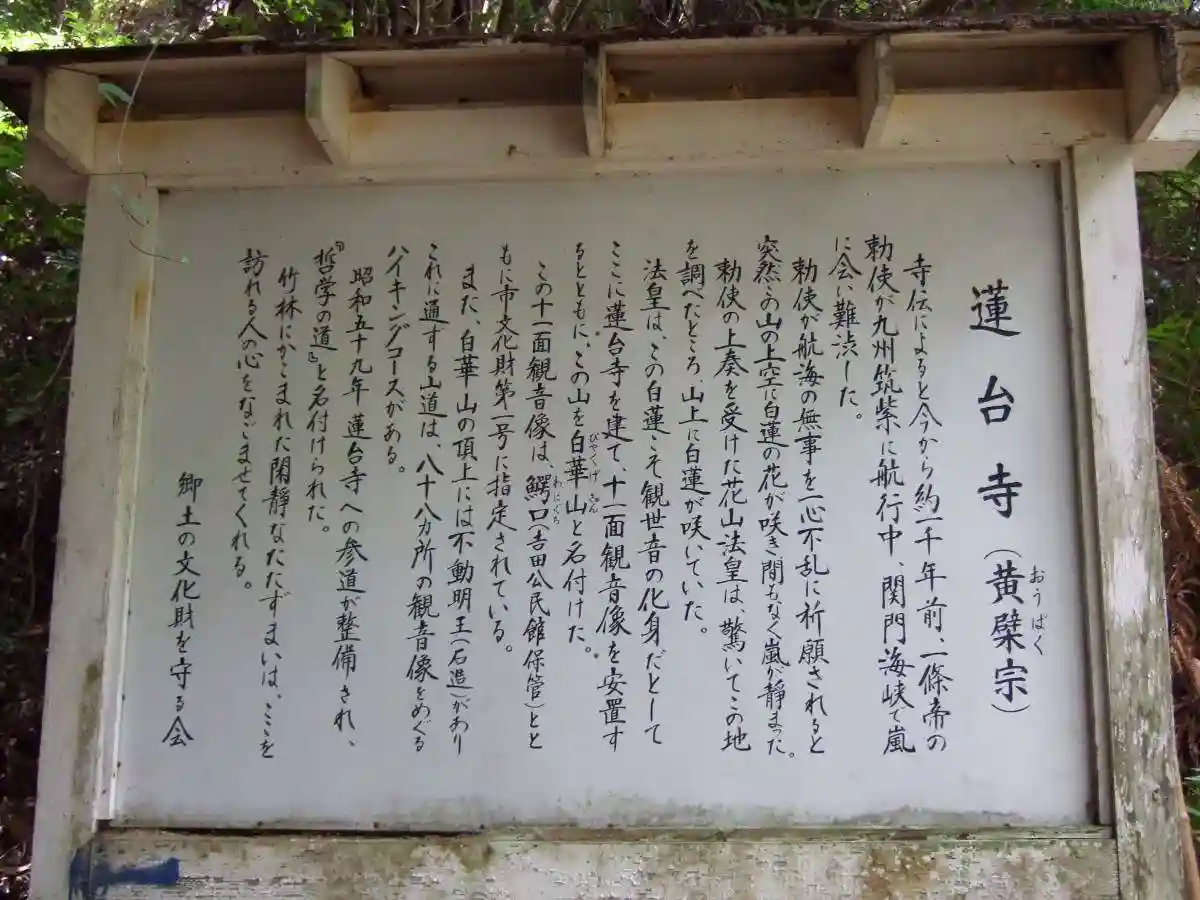 蓮台寺（黄檗宗）
おうばく
寺伝によると今から約一千年前、一條帝の
勅使が九州筑紫に航行中、関門海峡で嵐
に会い難渋した。
勅使が航海の無事を一心不乱に祈願されると
突然この山の上空に白蓮の花が咲き間もなく嵐が静まった。
勅使の上奏を受けた花山法皇は、驚いてこの地
を調べたところ、山上に白蓮が咲いていた。
法皇は、この白蓮こそ観世音の化身だとして
ここに蓮台寺を建て、十一面観音像を安置す
るとともに、この山を白華山と名付けた。
びゃくげさん
この十一面観音像は、鰐口（吉田公民館保管）とと
わにぐち
もに市文化財第一号に指定されている。
また、白華山の頂上には不動明王（石造）があり
これに通ずる山道は、八十八カ所の観音像をめぐる
ハイキングコースがある。
昭和五十九年 蓮台寺への参道が整備され、
『哲学の道』と名付けられた。
竹林にかこまれた閑静なたたずまいは、ここを
訪れる人の心をなごませてくれる。
郷土の文化財を守る会